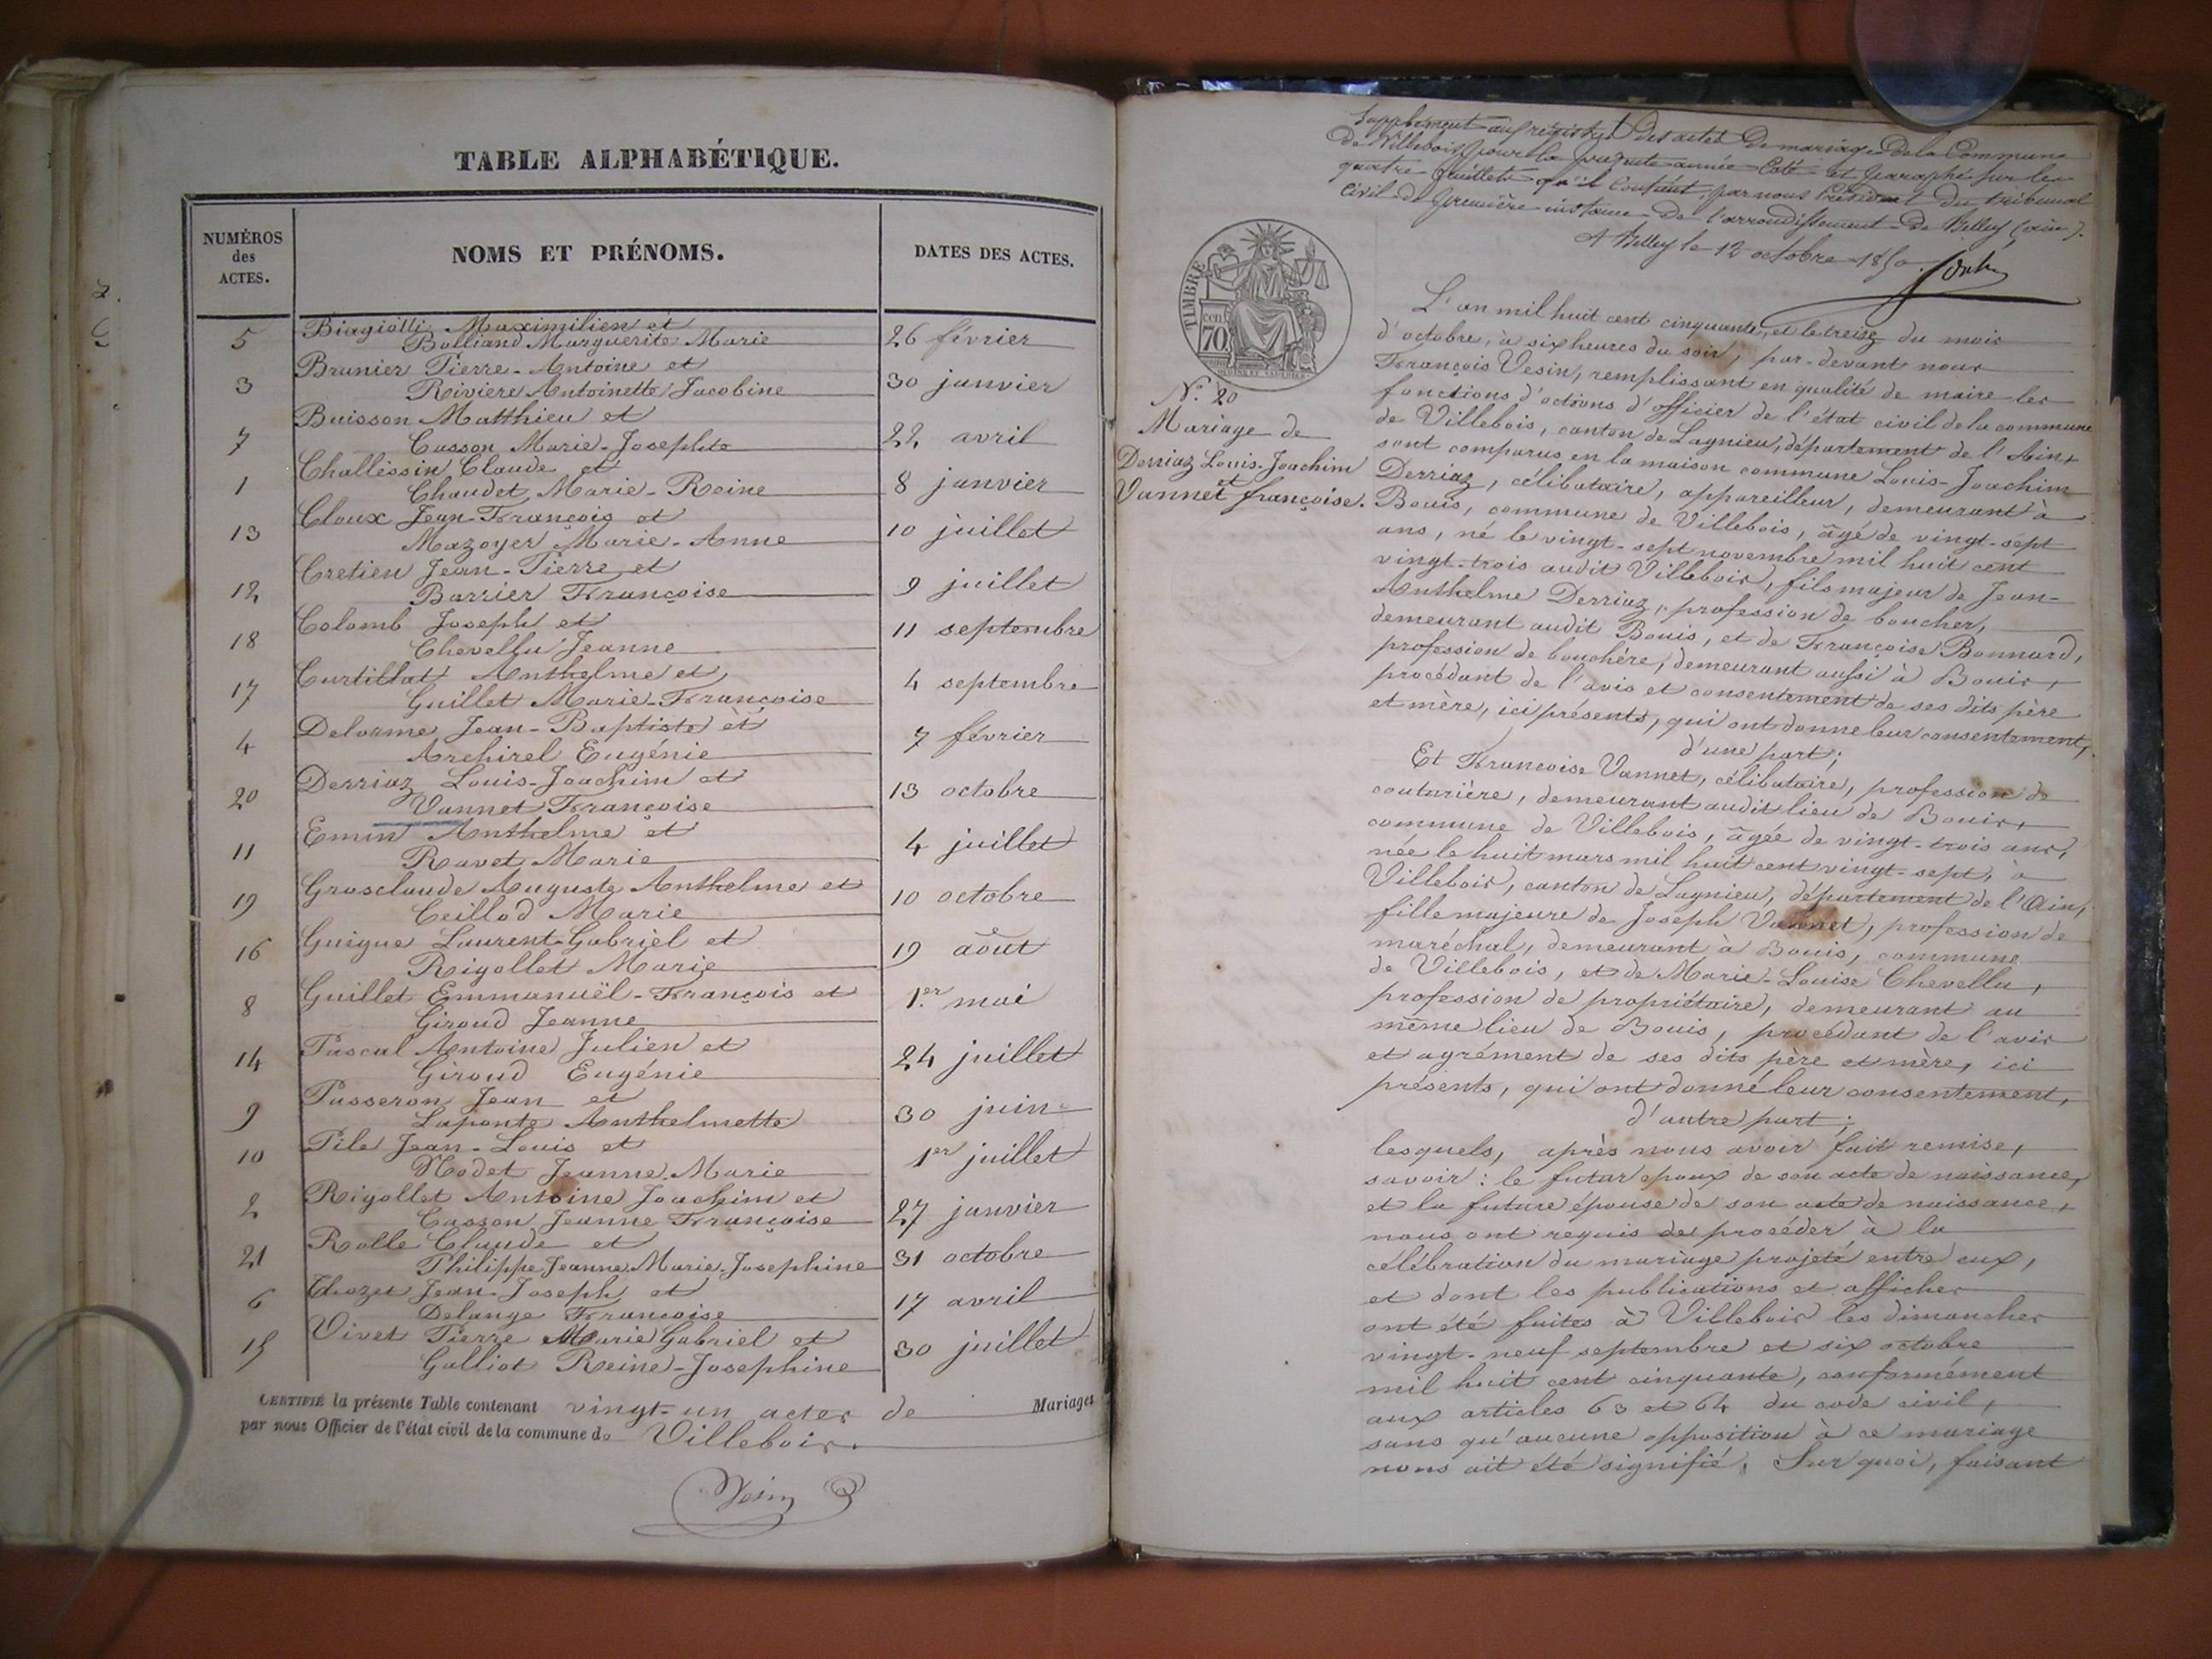 TABLE ALPHABÉTIQUE.
NUMÉROS
des
ACTES.
NOMS ET PRÉNOMS.
DATES DES ACTES.
5 Biagiotti Maximilien et
Bolliand Marguerite Marie 26 février
Brunier Pierre-Antoine et
3 Riviere Antoinette Jacobine 30 janvier
Buisson Matthieu et
7 Casson Marie-Josephte 22 avril
Challessin Claude et
1 Chaudet, Marie-Reine 8 janvier
Cloux Jean-François et
13 Mazoyer Marie-Anne 10 juillet
Cretien Jean-Pierre et
12 Barrier Françoise 9 juillet
Colomb Joseph et
18 Chevellu Jeanne 11 septembre
Curtillat Anthelme et
17 Guillet Marie-Françoise 4 septembre
Delorme Jean-Baptiste et
4 Archirel Eugénie 7 février
Derriaz Louis-Joachim et
20 Vannet Françoise 13 octobre
Emin Anthelme et
11 Ravet Marie 4 juillet
Grosclaude Auguste Anthelme et
19 Ceillod Marie 10 octobre
Guigue Laurent-Gabriel et
16 Rigollet Marie 19 août
Guillet Emmanuël-François et
8 Giroud Jeanne 1.er mai
Pascal Antoine Julien et
14 Giroud Eugénie 24 juillet
Passeron Jean et
9 Laponte Anthelmette 30 juin
Pile Jean-Louis et
10 Modet Jeanne Marie 1er juillet
Rigollet Antoine Joachim et
2 Casson Jeanne Françoise 27 janvier
Rolle Claude et
21 Philippe Jeanne Marie Josephine 31 octobre
Jean-Joseph et
6 Delange Françoise 17 avril
Vivet Pierre Marie Gabriel et
15 Galliot Reine-Josephine 30 juillet
CERTIFIÉ la présente Table contenant vingt-un actes de Mariages
par nous Officier de l'état civil de la commune de Villebois.
Vesin
Supplément au registre des actes de mariage de la Commune
de Villebois pour la présente année Coté et paraphé sur les
quatre feuillets qu'il Contient, par nous Président du tribunal
Civil de première instance de l'arrondissement de Belley (ain).
A Belley le 12 octobre 1850.
TIMBRE
70 cen
N.° 20
Mariage de
Derriaz Louis-Joachim
et
Vannet françoise.
L'an mil huit cent cinquante, et le treize du mois
d'octobre, à six heures du soir, par-devant nous
François Vesin, remplissant en qualité de maire les
fonctions d'actions d'officier de l'état civil de la commune
de Villebois, canton de Lagnieu, département de l'Ain,
sont comparus en la maison commune Louis-Joachim
Derriaz, célibataire, appareilleur, demeurant à
Bouis, commune de Villebois, âgé de vingt-sept
ans, né le vingt-sept novembre mil huit cent
vingt-trois audit Villebois, fils majeur de Jean-
Anthelme Derriaz, profession de boucher,
demeurant audit Bouis, et de Françoise Bonnard,
profession de bouchère, demeurant aussi à Bouis,
procédant de l'avis et consentement de ses dits père
et mère, ici présents, qui ont donné leur consentement,
d'une part;
Et Francoise Vannet, célibataire, profession de
couturière, demeurant audit lieu de Bouis,
commune de Villebois, âgée de vingt-trois ans,
née le huit mars mil huit cent vingt-sept, à
Villebois, canton de Lagnieu, département de l'Ain,
fille majeure de Joseph Vannet, profession de
maréchal, demeurant à Bouis, commune
de Villebois, et de Marie-Louise Chevellu,
profession de propriétaire, demeurant au
même lieu de Bouis, procédant de l'avis
et agrément de ses dits père et mère, ici
présents, qui ont donné leur consentement,
d'autre part;
lesquels, après nous avoir fait remise,
savoir: le futur epoux de son acte de naissance,
et la future épouse de son acte de naissance,
nous ont requis de procéder à la
célébration du mariage projeté entre eux,
et dont les publications et affiches
ont été faites à Villebois les dimanches
vingt-neuf septembre et six octobre
mil huit cent cinquante, conformément
aux articles 63 et 64 du code civil,
sans qu'aucune opposition à ce mariage
nous ait été signifié. Sur quoi, faisant